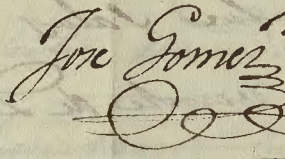 Jose Gomez